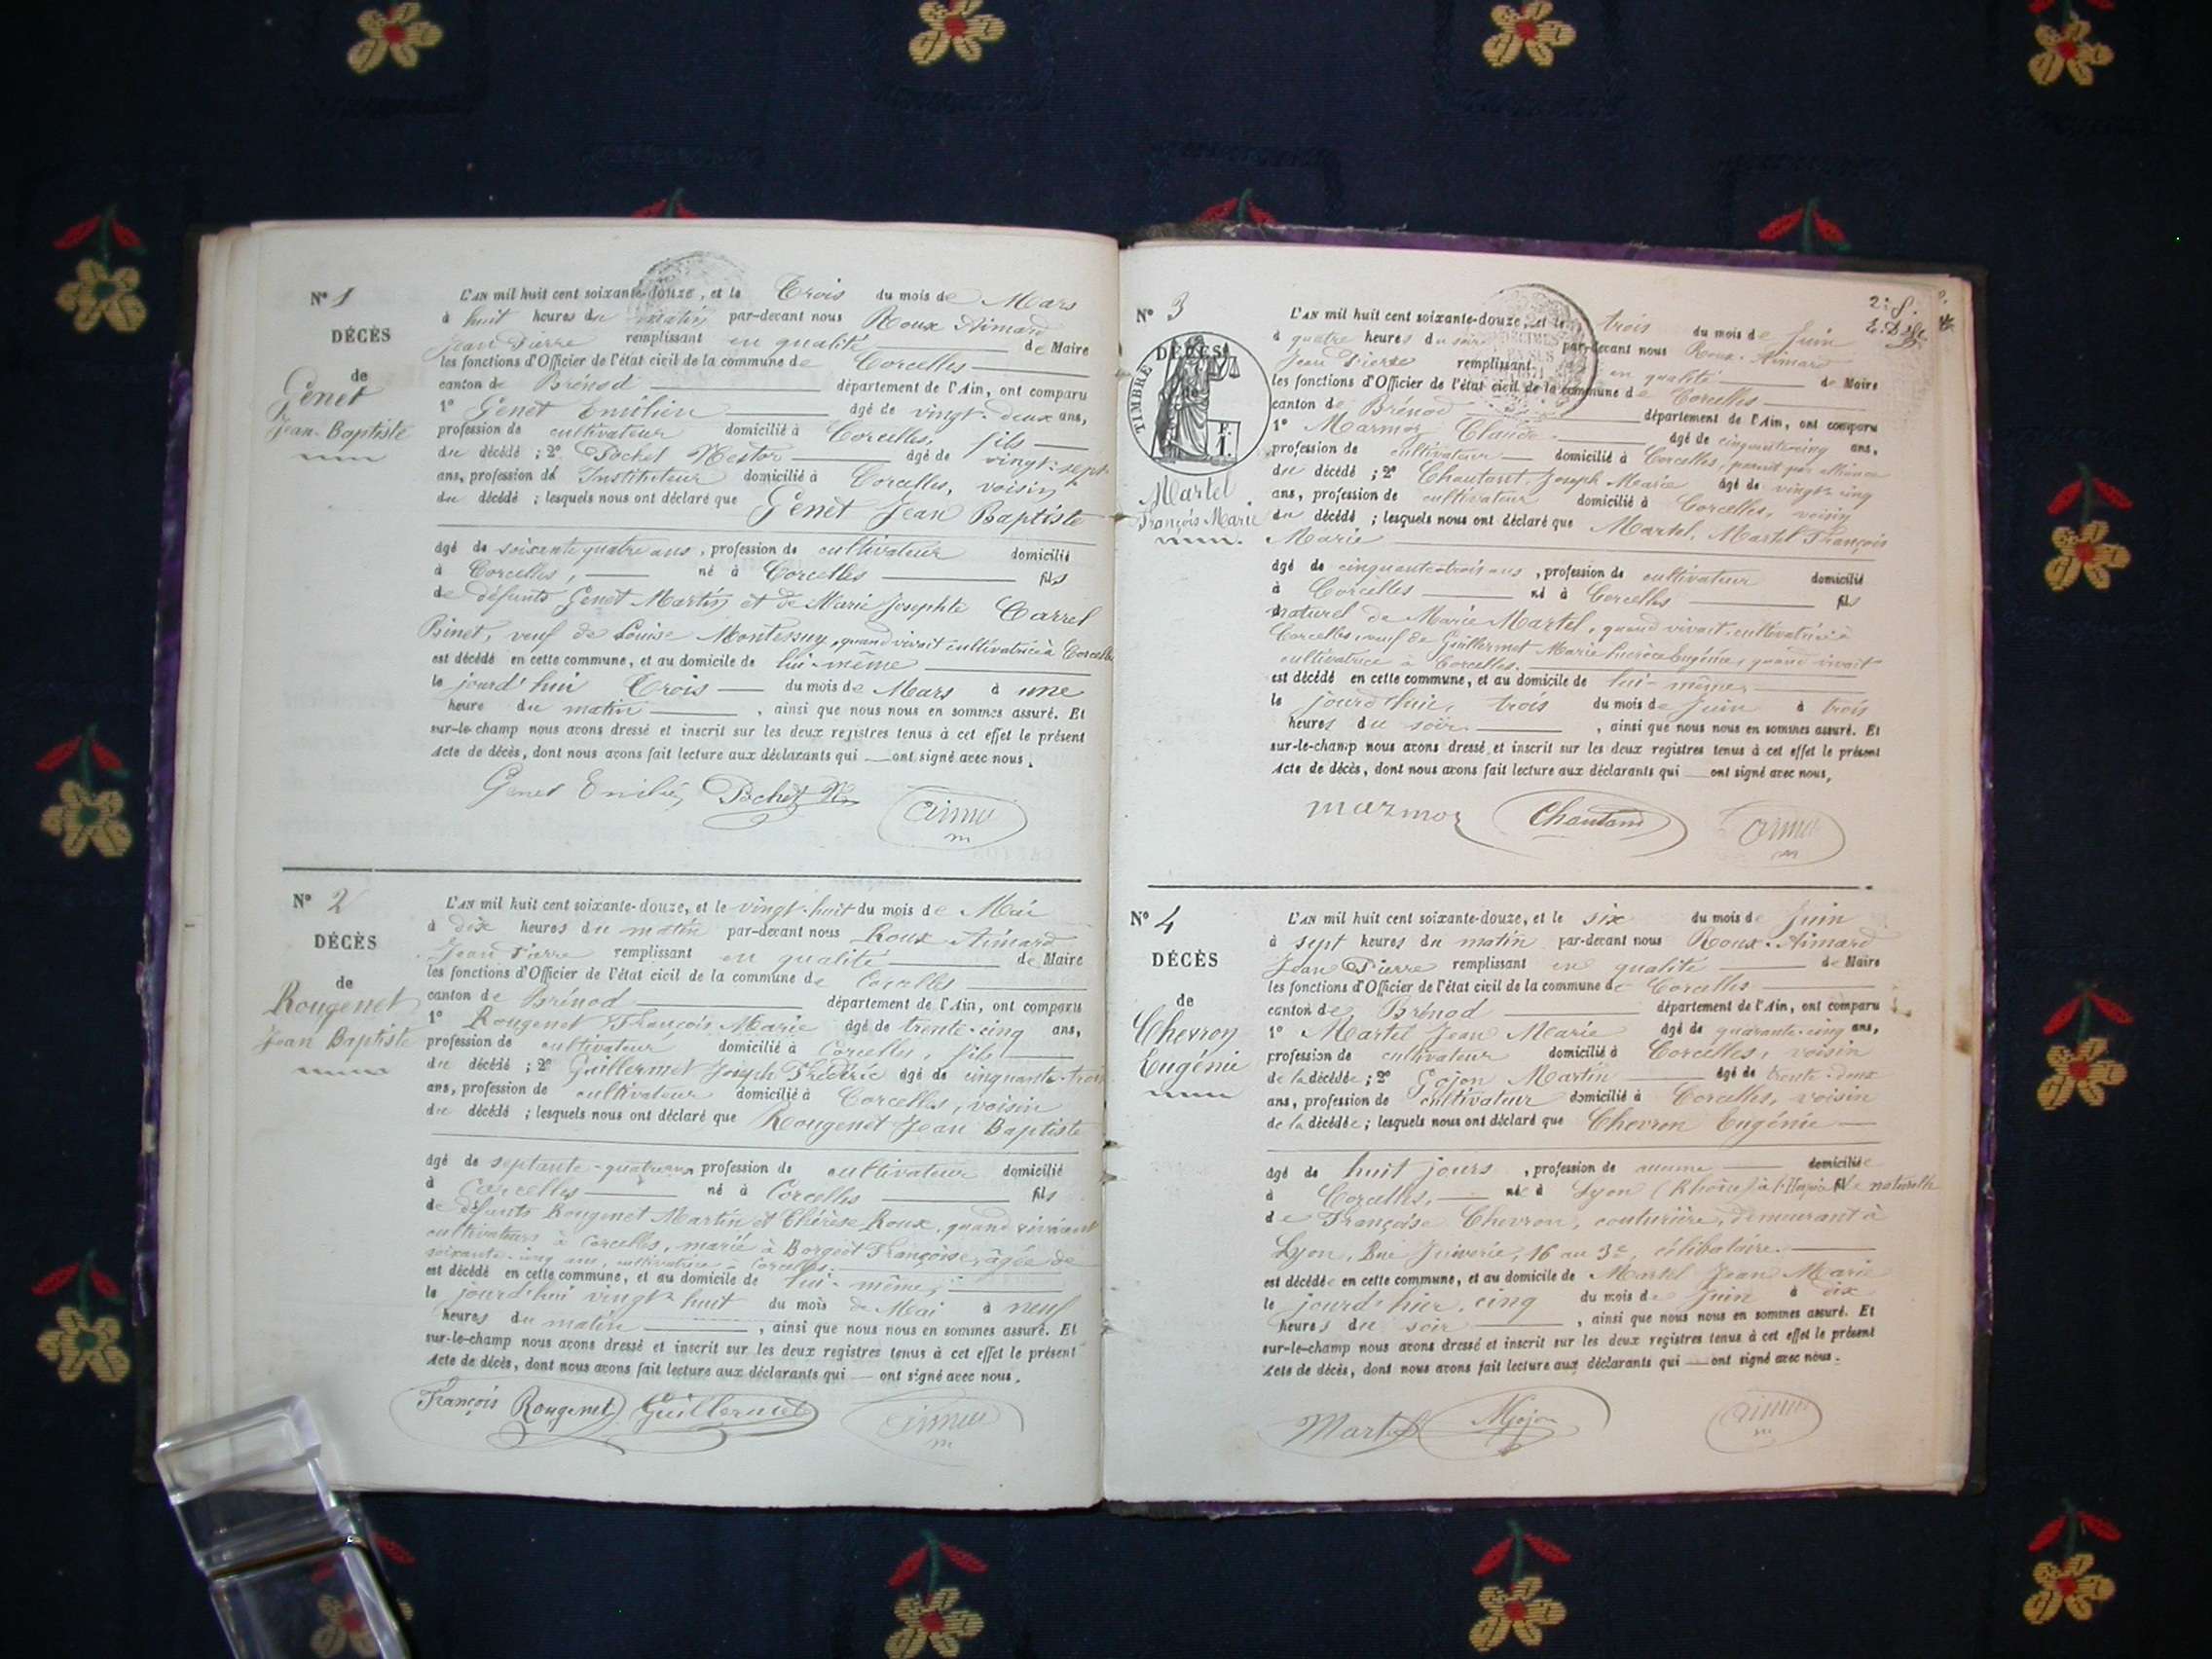 N° 1
DÉCÈS
de
Genet
Jean-Baptiste
L'AN mil huit cent soixante-douze, et le Trois du mois de Mars
à huit heures du matin par-devant nous Roux Aimard
Jean Pierre remplissant en qualité de Maire
les fonctions d'Officier de l'état civil de la commune de Corcelles
canton de Brénod département de l'Ain, ont comparu
1° Genet Emilien âgé de vingt-deux ans,
profession de cultivateur domicilié à Corcelles, fils
du décédé ; 2° Pochet Nestor âgé de vingt-sept
ans, profession de Instituteur domicilié à Corcelles, voisin
du décédé ; lesquels nous ont déclaré que Genet Jean Baptiste
âgé de soixante quatre ans, profession de cultivateur domicilié
à Corcelles, né à Corcelles fils
de défunts Genet Martin et de Marie Josephte Carrel
Binet, veuf de Louise Montessuy, quand vivait cultivatrice à Corcelles
est décédé en cette commune, et au domicile de lui-même
le jourd'hui Trois du mois de Mars à une
heure du matin, ainsi que nous nous en sommes assuré. Et
sur-le-champ nous avons dressé et inscrit sur les deux registres tenus à cet effet le présent
Acte de décès, dont nous avons fait lecture aux déclarants qui ont signé avec nous.
Genet Emilien Pochet N.
N° 2
DÉCÈS
de
Rougenet
Jean Baptiste
L'AN mil huit cent soixante-douze, et le vingt-huit du mois de Mai
à dix heures du matin par-devant nous Roux-Aimard
Jean Pierre remplissant en qualité de Maire
les fonctions d'Officier de l'état civil de la commune de Corcelles
canton de Brénod département de l'Ain, ont comparu
1° Rougenet François Marie âgé de trente-cinq ans,
profession de cultivateur domicilié à Corcelles, fils
du décédé ; 2° Guillermet Joseph Frédéric âgé de cinquante-trois
ans, profession de cultivateur domicilié à Corcelles, voisin
du décédé ; lesquels nous ont déclaré que Rougenet Jean Baptiste
âgé de septante-quatre ans profession de cultivateur domicilié
à Corcelles né à Corcelles fils
de défunts Rougenet Martin et Thérèse Roux, quand vivaient
cultivateurs à Corcelles, marié à Borgeot Françoise, âgée de
soixante-cinq ans, cultivatrice à Corcelles.
est décédé en cette commune, et au domicile de lui-même,
le jourd'hui vingt-huit du mois de Mai à neuf
heures du matin, ainsi que nous nous en sommes assuré. Et
sur-le-champ nous avons dressé et inscrit sur les deux registres tenus à cet effet le présent
Acte de décès, dont nous avons fait lecture aux déclarants qui ont signé avec nous.
François Rougenet Guillermet
N° 3
DÉCÈS
de
TIMBRE
F.
1.
Martel
François Marie
L'AN mil huit cent soixante-douze, et le trois du mois de Juin
à quatre heures du soir par-devant nous Roux-Aimard
Jean Pierre remplissant en qualité de Maire
les fonctions d'Officier de l'état civil de la commune de Corcelles
canton de Brénod département de l'Ain, ont comparu
1° Marmoz Claude âgé de cinquante-cinq ans,
profession de cultivateur domicilié à Corcelles, parent par alliance
du décédé ; 2° Chautant Joseph Marie âgé de vingt-cinq
ans, profession de cultivateur domicilié à Corcelles, voisin
du décédé ; lesquels nous ont déclaré que Martel, Martel François
Marie
âgé de cinquante-trois ans, profession de cultivateur domicilié
à Corcelles né à Corcelles fils
naturel de Marie Martel, quand vivait cultivatrice à
Corcelles, veuf de Guillermet Marie Lucrèce Eugénie, quand vivait
cultivatrice à Corcelles.
est décédé en cette commune, et au domicile de lui-même,
le jourd'hui, trois du mois de Juin à trois
heures du soir, ainsi que nous nous en sommes assuré. Et
sur-le-champ nous avons dressé et inscrit sur les deux registres tenus à cet effet le présent
Acte de décès, dont nous avons fait lecture aux déclarants qui ont signé avec nous,
marmoz Chautant
N° 4
DÉCÈS
de
Chevron
Eugénie
L'AN mil huit cent soixante-douze, et le six du mois de Juin
à sept heures du matin par-devant nous Roux-Aimard
Jean Pierre remplissant en qualité de Maire
les fonctions d'Officier de l'état civil de la commune de Corcelles
canton de Brénod département de l'Ain, ont comparu
1° Martel Jean Marie âgé de quarante-cinq ans,
profession de cultivateur domicilié à Corcelles, voisin
de la décédée ; 2° Gojon Martin âgé de trente-deux
ans, profession de cultivateur domicilié à Corcelles, voisin
de la décédée ; lesquels nous ont déclaré que Chevron Eugénie
âgé de huit jours, profession de aucune domiciliée
à Corcelles, née à Lyon (Rhône) à l'Hospice fille naturelle
de Françoise Chevron, couturière, demeurant à
Lyon, Rue Juiverie, 16 au 3e, célibataire.
est décédée en cette commune, et au domicile de Martel Jean Marie
le jourd'hier, cinq du mois de Juin à dix
heures du soir, ainsi que nous nous en sommes assuré. Et
sur-le-champ nous avons dressé et inscrit sur les deux registres tenus à cet effet le présent
Acte de décès, dont nous avons fait lecture aux déclarants qui ont signé avec nous.
Martel Mgojon